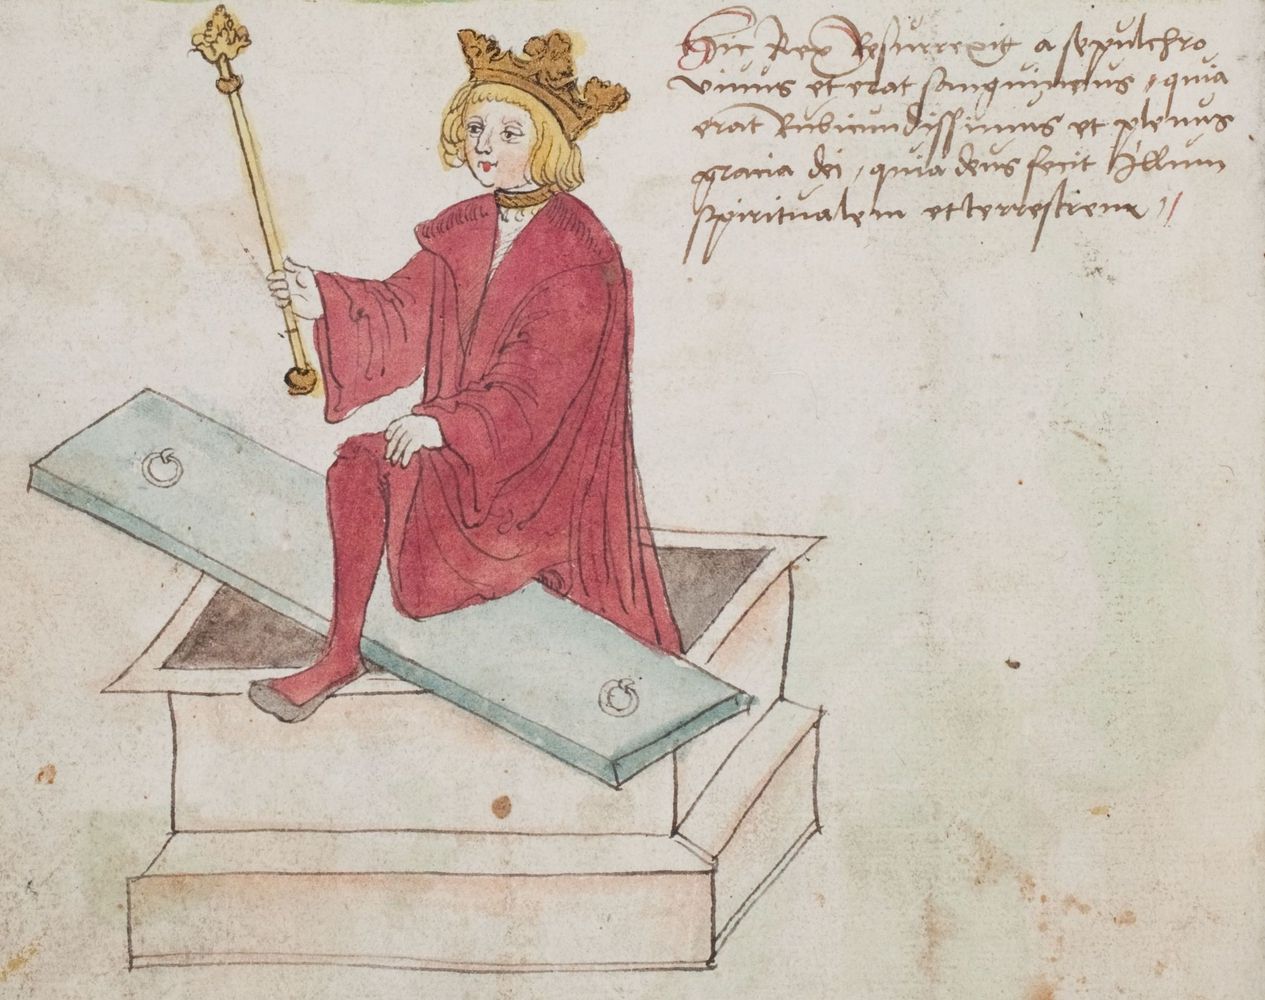 Sic Rex Resurrexit a sepulchro
viuus et erat sanguineus, quia
erat Rubicundissimus et plenus
gracia dei, quia deus fecit Illum
spiritualem et terrestrem //